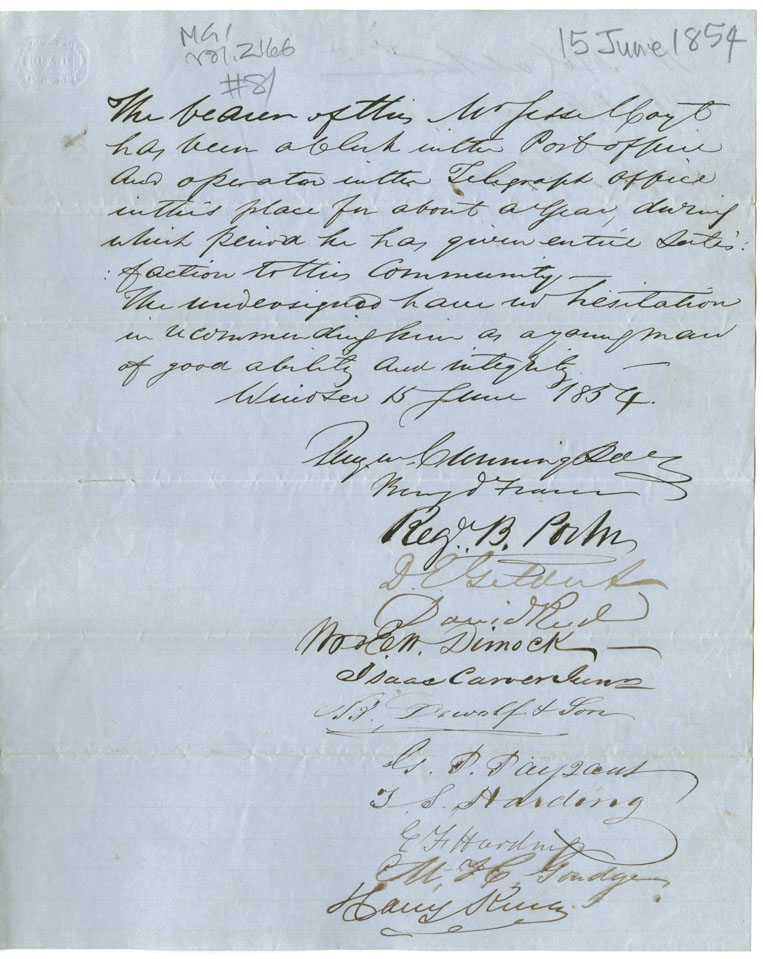 MG1
vol. 2166
#81
15 June 1854
The bearer of this Mr Jesse Hoyt
has been a Clerk in the Post office
and operator in the Telegraph office
in this place for about a Year, during
which period he has given entire Satis:
:faction to this Community –
The undersigned have no hesitation
in recommending him as a young man
of good ability and integrity –
Windsor 15 June 1854.
Cunningham
Benjd Fraser
Regd. B. Porter
D. E. Geldert
David Reid
W & E. W. Dimock –
Isaac Carver Junr
Dewolf & Son
G. P. Payzant
T. S. Harding
E F Harding
M, H, Goudge
Harry King